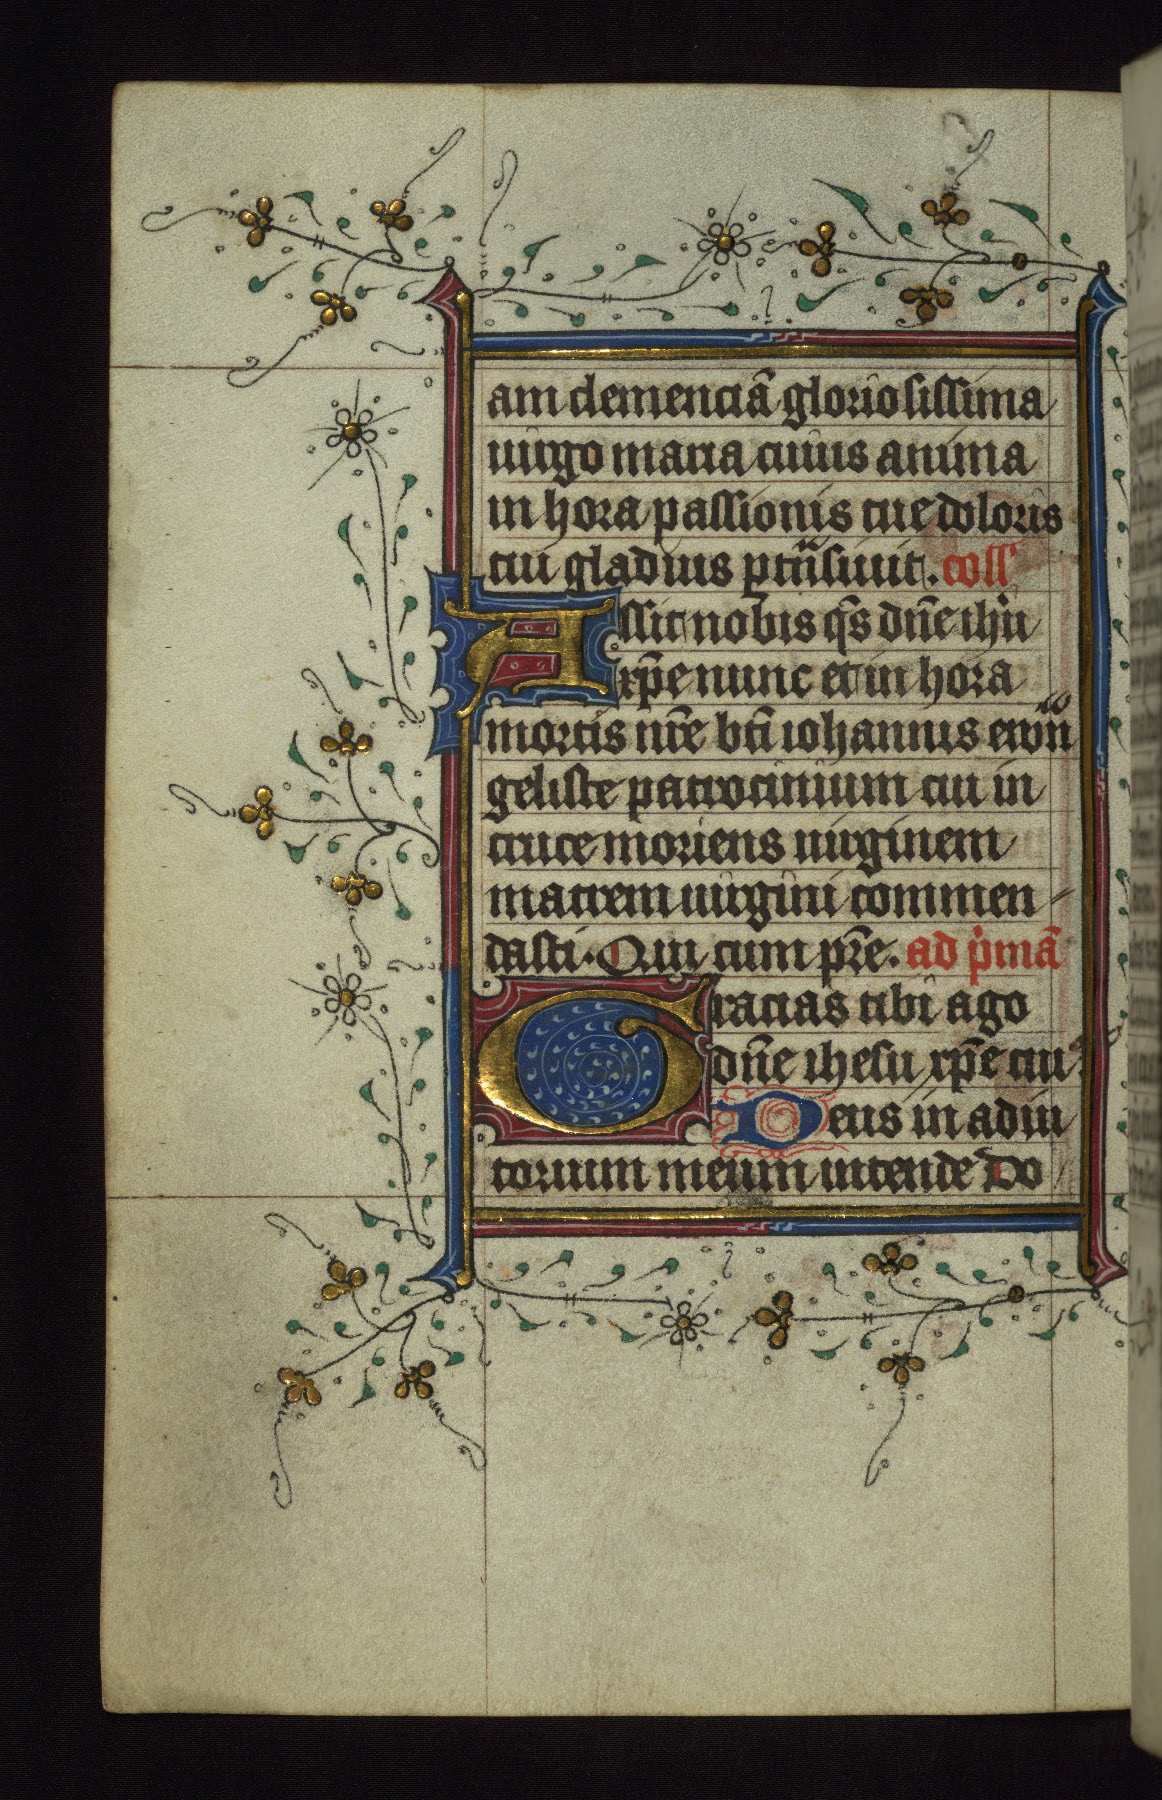 am clemenciā gloriosissima
uirgo maria cuius anima
in hora passionis tue doloris
tui gladius ptrāsiuit. coll
Assit nobis q̄s dn̄e ihu
xp̄e nunc et in hora
mortis nr̄e bt̄i iohannis ewan
geliste patrocinium cui in
cruce moriens uirginem
matrem uirgini commen
dasti. Qui cum pr̄e. ad p̄mā
Gracias tibi ago
dn̄e ihesu xp̄e cui
Deus in adiu
torium meum intende Do